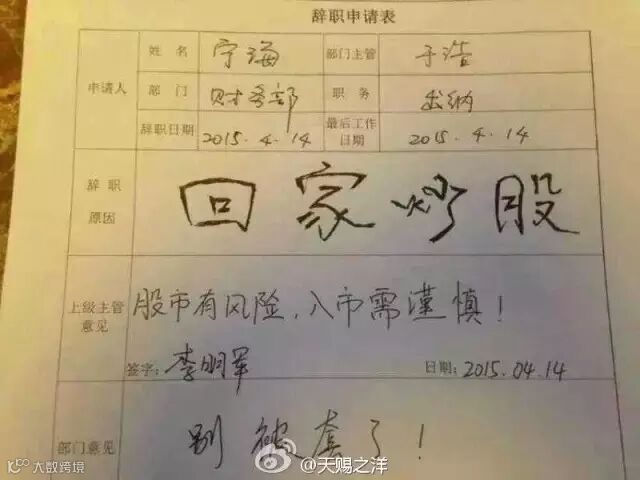 辞职申请表
申请人
姓名 宁海 部门主管 于浩
部门 财务部 职务 出纳
辞职日期 2015.4.14 最后工作日期 2015.4.14
辞职原因
回家炒股
上级主管意见
股市有风险,入市需谨慎!
签字: 李明军 日期: 2015.04.14
部门意见
别被套了!
@天赐之洋
大数跨境